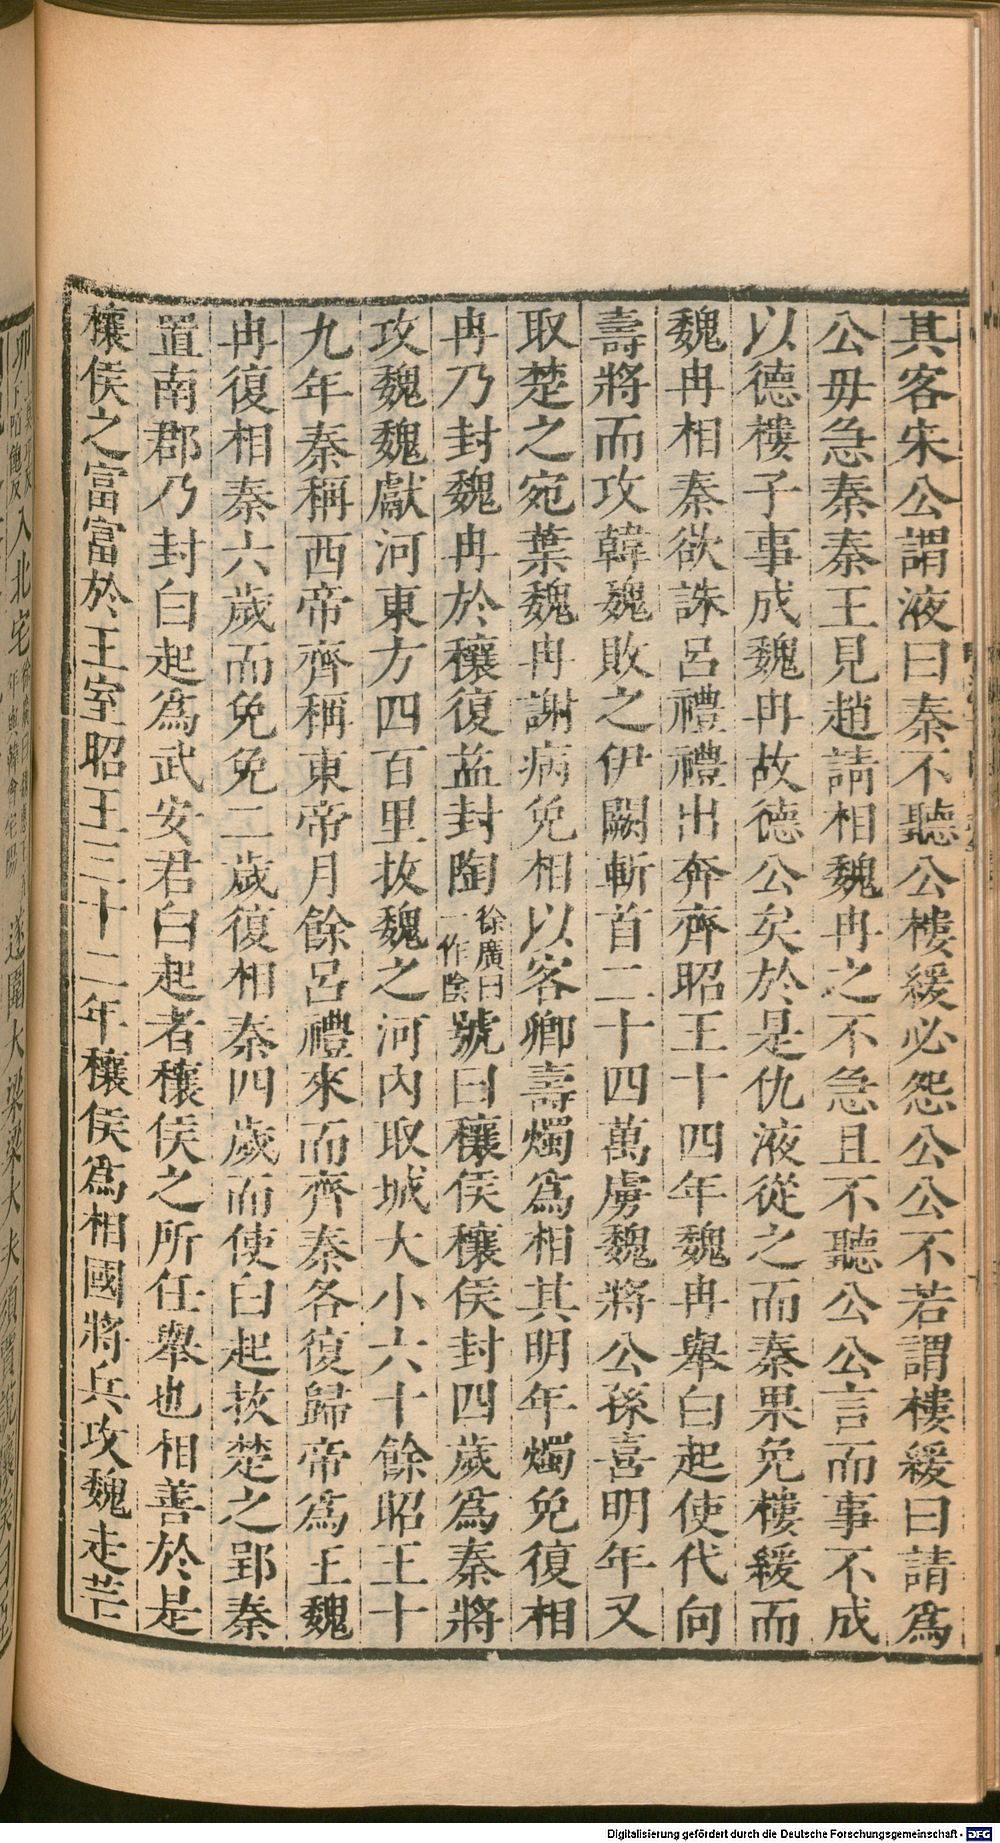 其客宋公謂液曰秦不聽公樓緩必怨公公不若謂樓緩曰請爲
公毋急秦秦王見趙請相魏冉之不急且不聽公公言而事不成
以德樓子事成魏冉故德公矣於是仇液從之而秦果免樓緩而
魏冉相秦欲誅呂禮禮出奔齊昭王十四年魏冉舉白起使代向
壽將而攻韓魏敗之伊闕斬首二十四萬虜魏將公孫喜明年又
取楚之宛葉魏冉謝病免相以客卿壽燭爲相其明年燭免復相
冉乃封魏冉於穰復益封陶徐廣曰一作陰號曰穰侯穰侯封四歲爲秦將
攻魏魏獻河東方四百里拔魏之河內取城大小六十餘昭王十
九年秦稱西帝齊稱東帝月餘呂禮來而齊秦各復歸帝爲王魏
冉復相秦六歲而免免二歲復相秦四歲而使白起拔楚之郢秦
置南郡乃封白起爲武安君白起者穰侯之所任舉也相善於是
穰侯之富富於王室昭王三十二年穰侯爲相國將兵攻魏走芒
入北宅
遂圍大梁梁大夫
Digitalisierung gefördert durch die Deutsche Forschungsgemeinschaft - DFG